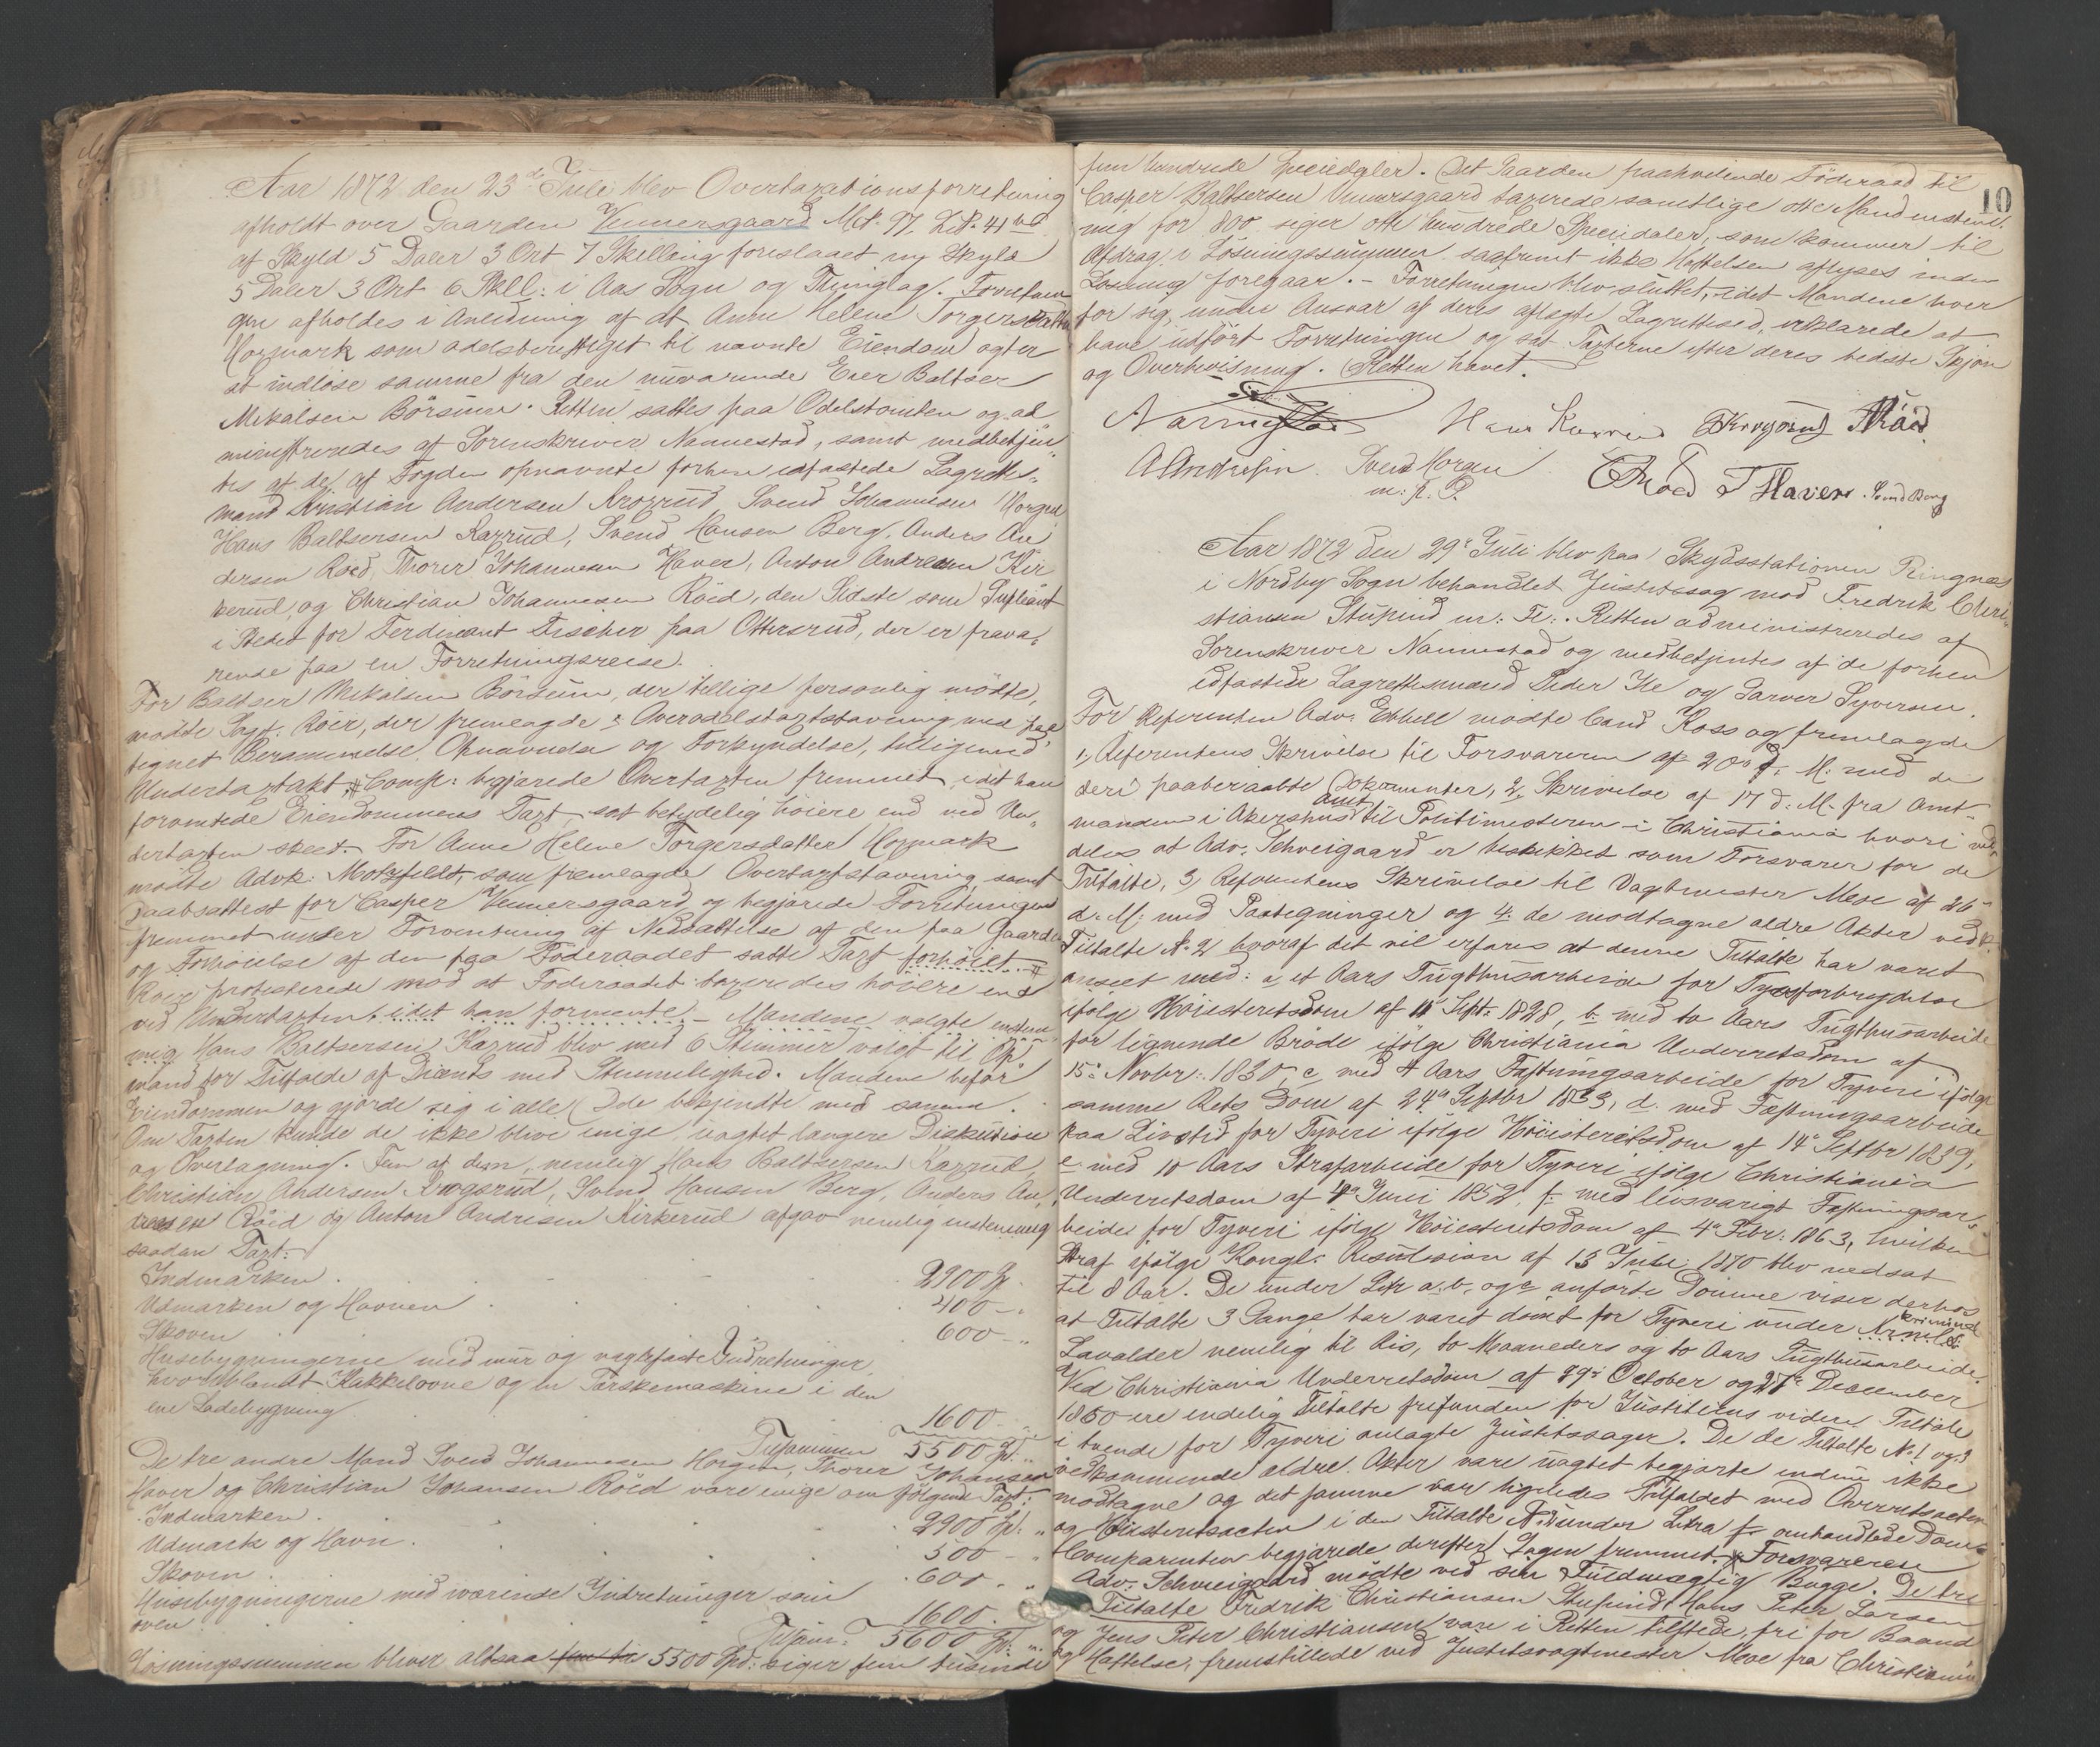 Aar 1872 den 23de Juli blev Overtaxationsforretning
afholdt over Gaarden Vennersgaard Mat. 97, Lit. 41
af Skyld 5 Daler 3 Ort 7 Skelling foreslaaet ny Skyld
5 Daler 3 Ort 6 Skll: i Aas Sogn og Thinglag. Forretnin-
gen afholdes i Anledning af at Anne Helene Torgersdatter
Hogmark som odelsberettiget til nævnte Eiendom agter
at indløse samme fra den nuværende Eier Baltser
Mikalsen Börsum. Retten sattes paa Odelstomten og ad
ministreredes af Sorenskriver Nannestad, samt medbetjen-
tes af de af Fogden opnævnte forhen edfæstede Lagrettes-
mænd Kristian Andersen Krogsrud, Svend Johannesen Horgen
Hans Baltsersen Karrud, Svend Hansen Berg, Anders An
dersen Röed, Thorer Johannesen Haver, Anton Andresen Kir
kerud, og Christian Johannesen Röed, den Sidste som Supleant
i Stedet for Ferdinant Fischer paa Ottersrud, der er fravæ-
rende paa en Forretningsreise.
For Baltser Mikalsen Börsum, der tillige personlig mødte,
mødte Sagf. Roer, der fremlagde Overodelstaxtstævning med paa
tegnet Berammelse, Opnævnelse og Forkyndelse, tilligemed
Undertaxtakt. Comp: begjærede Overtaxten fremmet, idet han
formentede Eiendommens Taxt sat betydelig høiere end ved Un-
dertaxten skeet. For Anne Helene Torgersdatter Hogmark
mødte Advk: Motzfeldt, som fremlagde Overtaxtstævning samt
Daabsattest for Casper Vennersgaard og begjærede Forretningen
fremmet under Forventning af Nedsættelse af den paa Gaarden
og Forhöielse af den paa Föderaadet satte Taxt forhöiet.
Roer protesterede mod at Föderaadet taxeredes høiere end
ved Undertaxten, idet han formente. – Mændene valgte enstem
mig Hans Baltsersen Karrud blev med 6 Stemmer valgt til Op
mand for Tilfælde af Dissents med Stemmelighed. Mændene befor
Eiendommen og gjorde sig i alle Dele bekjendte med samme.
Om Taxten kunde de ikke blive enige, uagtet længere Diskution
og Overlægning. Fem af dem, nemlig Hans Baltsersen Karrud,
Christian Andersen Krogsrud, Svend Hansen Berg, Anders An
dersen Röed og Anton Andresen Kirkerud afgav nemlig enstemmig
saadan Taxt:
Indmarken. 2900 Sp.
Udmarken og Havnen 400 – "
Skoven 600 – "
Husebygningerne med mur og nagelfaste Indretninger,
hvoriblandt Kakkelovne og en Tærskemaskine i den
ene Ladebygning 1600 –
Tilsammen 5500 Sp: "
De tre andre Mænd Svend Johannesen Horgen, Thorer Johansen
Haver og Christian Johansen Röed vare enige om følgende Taxt:
Indmarken. 2900 Sp: "
Udmark og Havn. 500 – "
Skoven. 600 – "
Husebygningerne med værende Indretninger som
oven 1600.
Tilsam: 5600 Sp: "
Løsningssummen bliver altsaa 5500 Spd: siger fem tusinde
10
fem hundrede Speciedaler. Det Gaarden paahvilende Föderaad til
Casper Baltsersen Vennersgaard taxerede samtlige otte Mænd enstem-
mig for 800 siger otte hundrede Speciedaler, som kommer til
Afdrag i Løsningssummen, saafremt ikke Hæftelsen aflyses inden
Løsning foregaar. – Forretningen blev sluttet, idet Mændene hver
for sig, under Ansvar af deres aflagte Lagrettesed, erklærede at
have udført Forretningen og sat Taxterne efter deres bedste Skjøn
og Overbevisning. Retten hævet.
Nannestad Hans Karrud Krogsrud Röed
A Andresen Svend Horgen Röed T Haver. Svend Berg
m. p. P.
Aar 1872 den 29de Juli blev paa Skydsstationen Ringnæs
i Nordby Sogn behandlet Justitssag mod Fredrik Chri-
stiansen Stupind m: Fl:. Retten administreredes af
Sorenskriver Nannestad og medbetjentes af de forhen
edfæstede Lagrettesmænd Peder Ile og Larver Syversen.
For Referenten Adv. Ebbell mødte Cand Ross og fremlagde
1, Referentens Skrivelse til Forsvareren af 20de d. M: med de
deri paaberaabte Dokumenter, 2, Skrivelse af 17 d. M. fra Amt-
manden i Akershus Amt til Politimesteren i Christiania hvori med
deles at Adv. Schweigaard er beskikket som Forsvarer for de
Tiltalte, 3, Referentens Skrivelse til Vagtmester Meve af 26de
d. M: med Paategninger og 4: de modtagne ældre Akter vedk:
Tiltalte No 2 hvoraf det vil erfares at denne Tiltalte har været
anseet med: a, et Aars Tugthusarbeide for Tyvsforbrydelse
ifølge Høiesteretsdom af 11 Sept: 1828, b. med to Aars Tugthusarbeide
for lignende Bröde ifølge Christiania Underretsdom af
15de Novbr: 1830, c, med 4 Aars Fæstningsarbeide for Tyveri ifølge
samme Rets Dom af 24de Septbr 1833, d. med Fæstningsarbeide
paa Livstid for Tyveri ifølge Høiesteretsdom af 14de Septbr 1839,
e med 10 Aars Strafarbeide for Tyveri ifølge Christiania
Underretsdom af 4de Juni 1852, f. med livsvarigt Fæstningsar-
beide for Tyveri ifølge Høiesteretsdom af 4de Febr: 1863, hvilken
Straf ifølge Kongl. Resolution af 13 Juni 1870 blev nedsat
til 8 Aar. De under Litr a. b. og c anførte Domme viser derhos
at Tiltalte 3 Gange har været dømt for Tyveri under kriminel
Lavalder nemlig til Ris, to Maaneders og to Aars Tugthusarbeide.
Ved Christiania Underretsdom af 29de October og 27de December
1860 ere endelig Tiltalte frifunden for Justitiens videre Tiltale
i tvende for Tyveri anlagte Justitssager. De de Tiltalte No 1 og 3
vedkommende ældre Akter vare uagtet begjærte endnu ikke
modtagne og det samme var ligeledes Tilfældet med Overretsacten
og Høiesteretsacten i den Tiltalte No 2 under Litra f. omhandlede Dom.
Comparenten begjærede derefter Sagen fremmet. Forsvareren
Adv. Schweigaard mødte ved sin Fuldmægtig Bugge. De tre
Tiltalte Fredrik Christiansen Stupind, Hans Peter Larsen
og Jens Peter Christiansen vare i Retten tilstede, fri for Baand
og Hæftelse, fremstillede ved Justitsvagtmester Meve fra Christiania